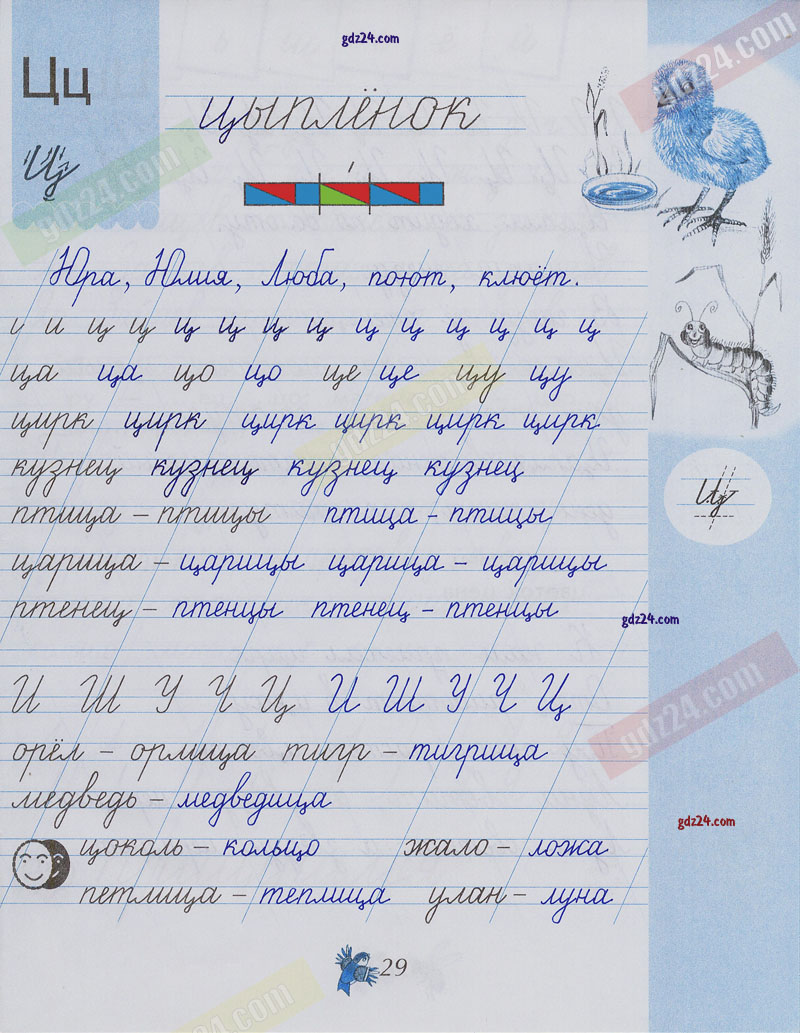 gdz24.com
Цц
цыплёнок
Ц
gdz24.com
gdz24.com
Юра, Юлия, Люба, поют, клюёт.
и и ц ц ц ц ц ц ц ц ц ц ц ц
ца ца цо цо це це цу цу
цирк цирк цирк цирк цирк цирк
gdz24.com
кузнец кузнец кузнец кузнец
Ц
птица – птицы птица – птицы
царица – царицы царица – царицы
птенец – птенцы птенец – птенцы
gdz24.com
И Ш У Ч Ц И Ш У Ч Ц
gdz24.com
орёл – орлица тигр – тигрица
медведь – медведица
gdz24.com
цоколь – кольцо жало – ложа
петлица – теплица улан – луна
29